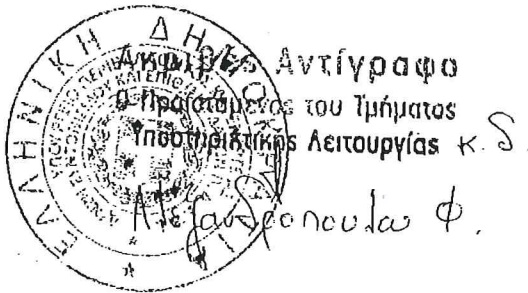 ΕΛΛΗΝΙΚΗ ΔΗΜΟΚΡΑΤΙΑ
Ακριβές Αντίγραφο
Ο Προϊστάμενος του Τμήματος
Υποστηρικτικής Λειτουργίας κ.δ.
Αλεξανδροπούλου Φ.